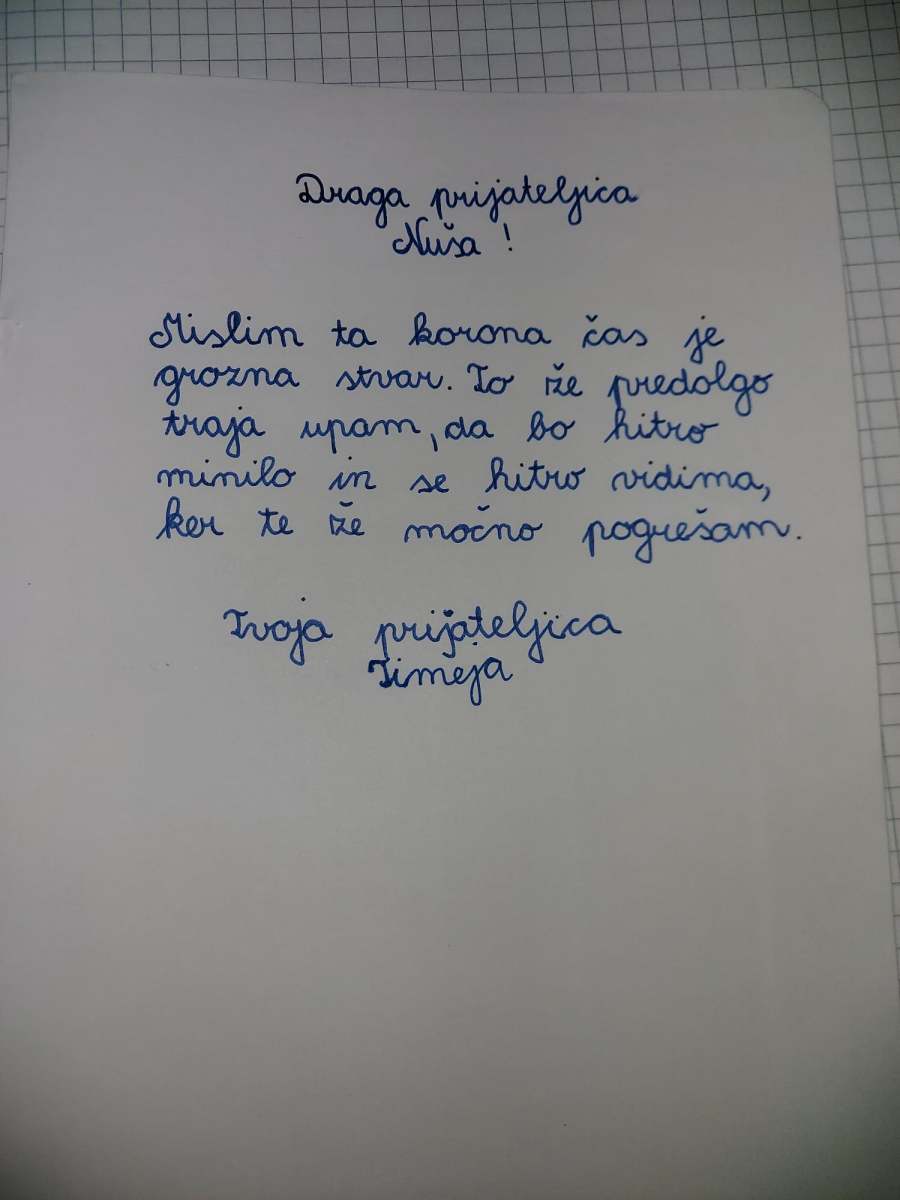 Draga prijateljica
Nuša!
Mislim ta korona čas je
grozna stvar. To že predolgo
traja upam, da bo hitro
minilo in se hitro vidima,
ker te že močno pogrešam.
Tvoja prijateljica
Timeja